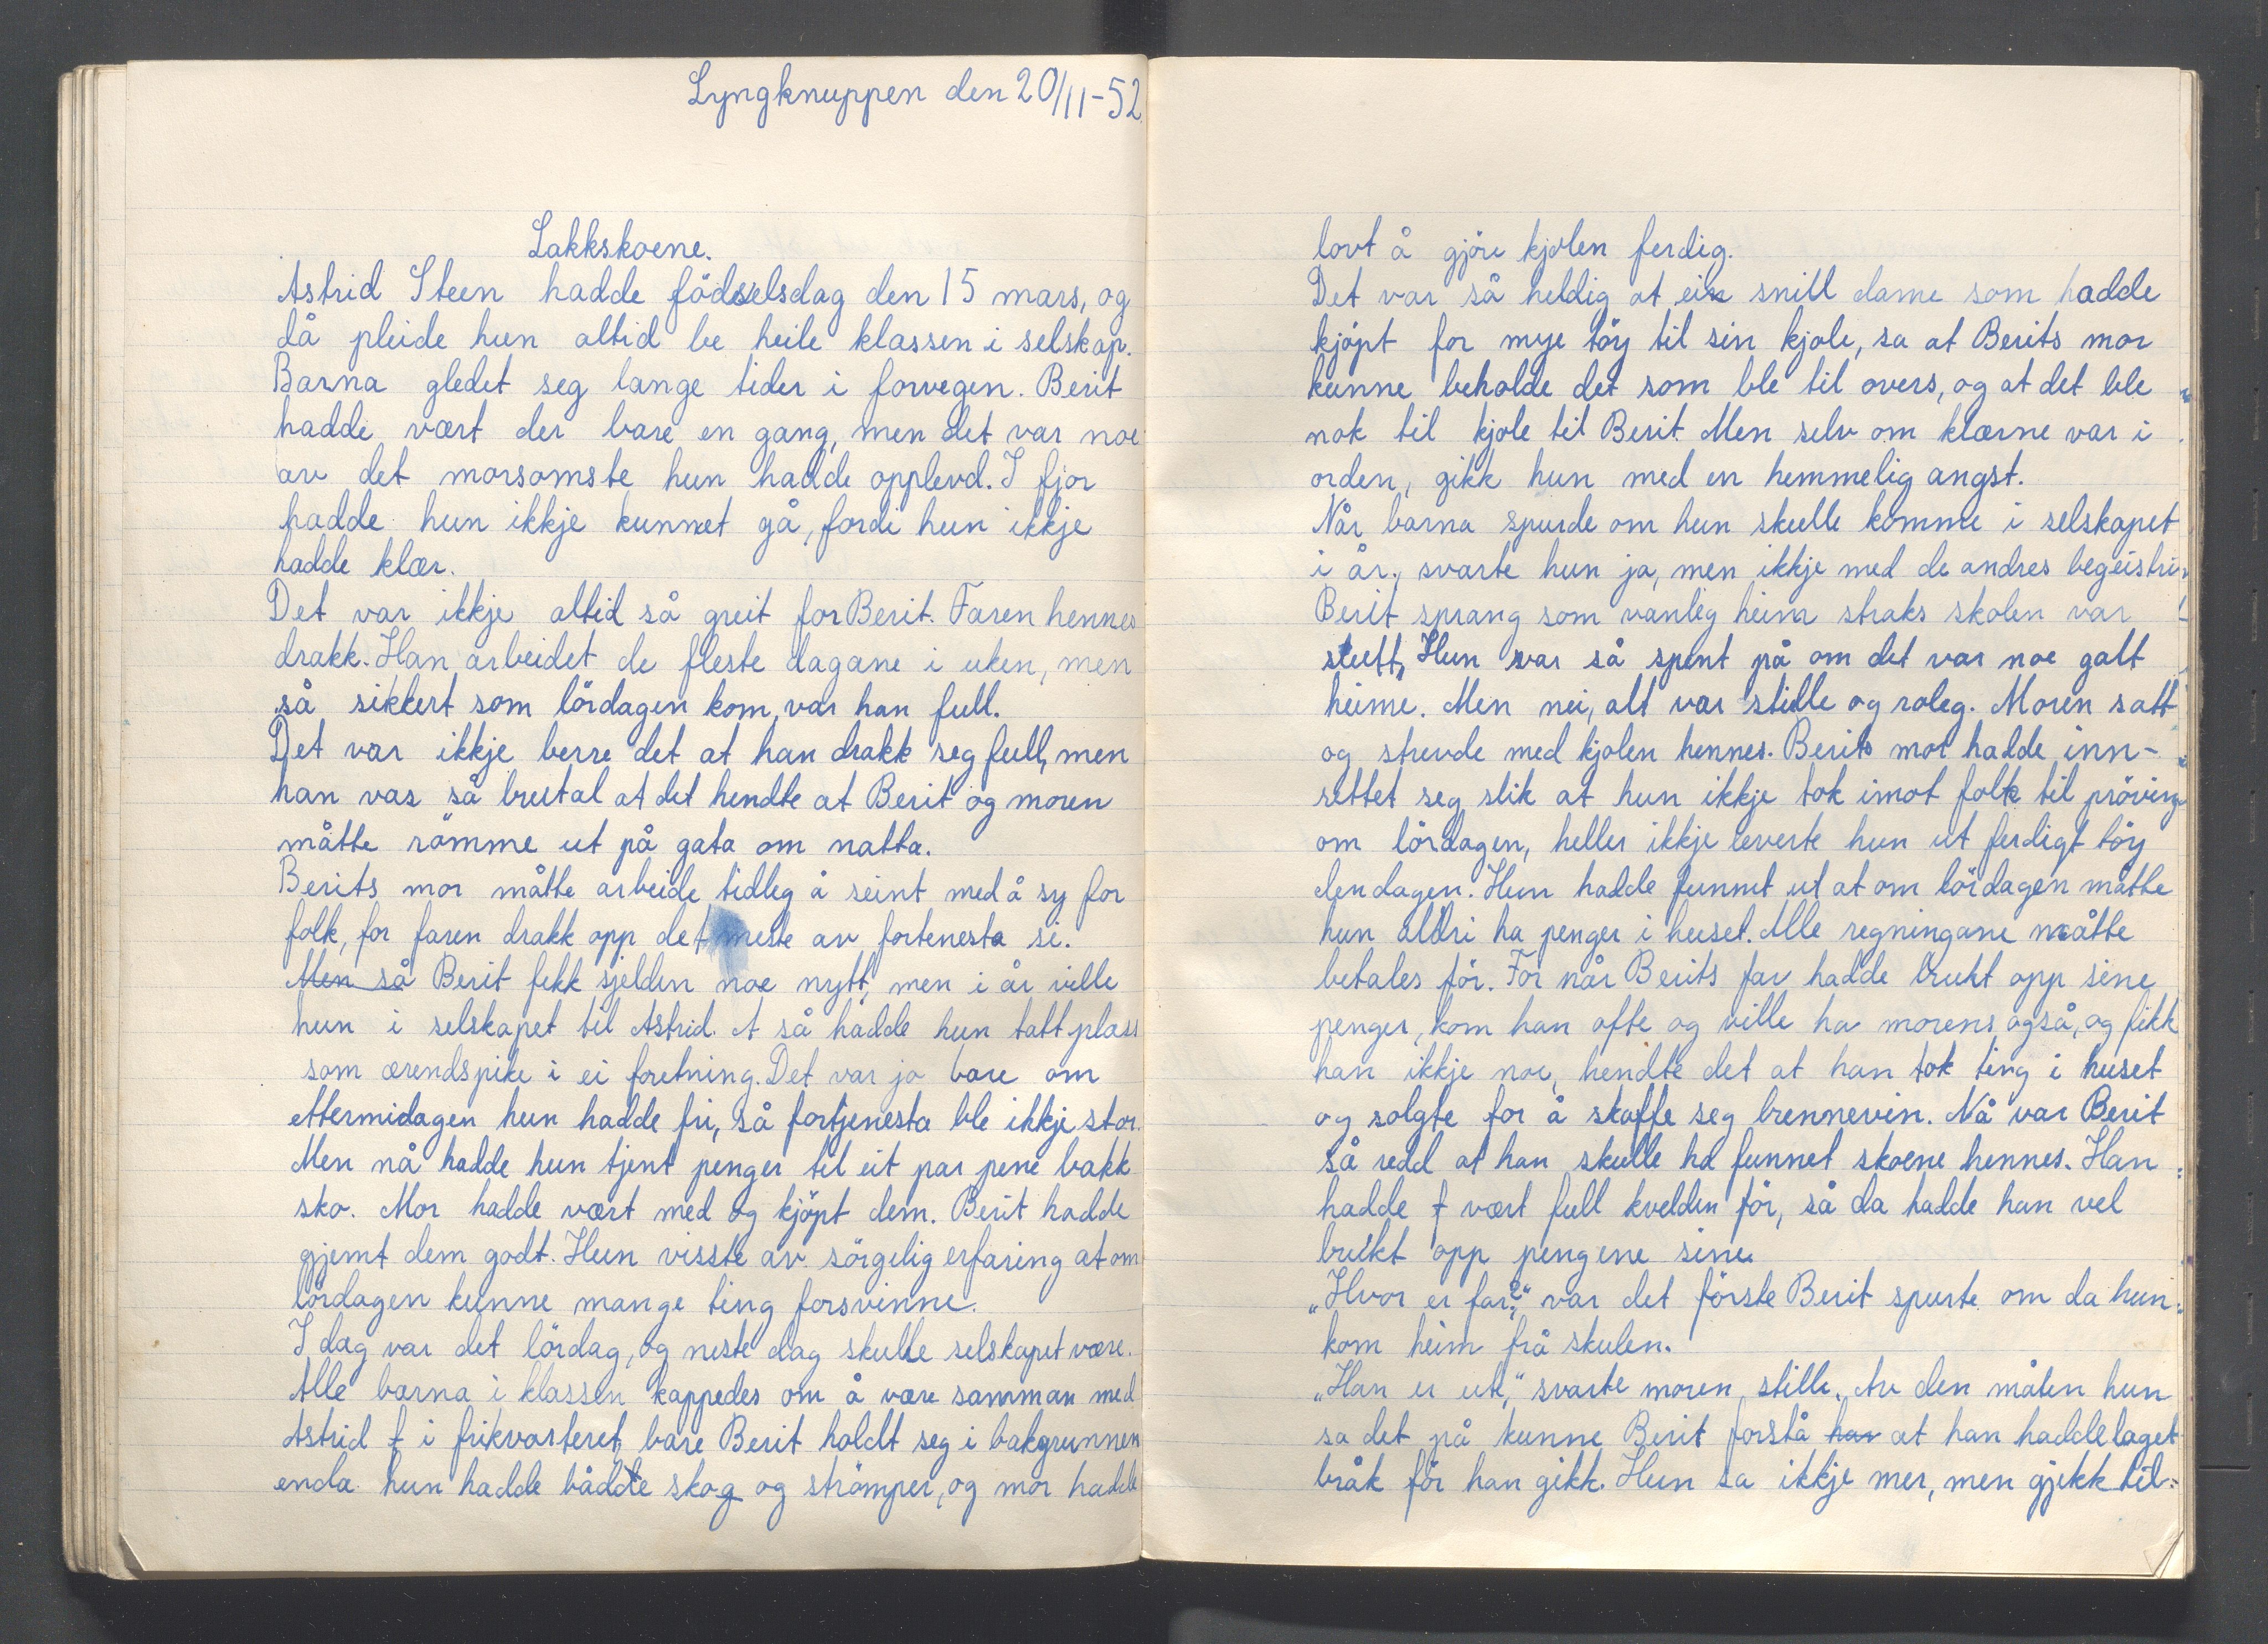 Lyngknuppen den 20/11-52.
Lakkskoene.
Astrid Steen hadde födselsdag den 15 mars, og
då pleide hun altid be heile klassen i selskap.
Barna gledet seg lange tider i forvegen. Berit
hadde vært der bare en gang, men det var noe
av det morsomste hun hadde opplevd. I fjor
hadde hun ikkje kunnet gå, fordi hun ikkje
hadde klær.
Det var ikkje altid så greit for Berit. Faren hennes
drakk. Han arbeidet de fleste dagane i uken, men
så sikkert som lördagen kom, var han full.
Det var ikkje berre det at han drakk seg full, men
han var så brutal at det hendte at Berit og moren
måtte römme ut på gata om natta.
Berits mor måtte arbeide tidleg å seint med å sy for
folk, for faren drakk opp det meste av fortenesta si.
Men så Berit fekk sjelden noe nytt, men i år ville
hun i selskapet til Astrid. A så hadde hun tatt plass
som ærendspike i ei foretning. Det var jo bare om
ettermidagen hun hadde fri, så fortjenesta ble ikkje stor.
Men nå hadde hun tjent penger til eit par pene lakk
sko. Mor hadde vært med og kjöpt dem. Berit hadde
gjemt dem godt. Hun visste av sörgelig erfaring at om
lördagen kunne mange ting forsvinne.
I dag var det lördag, og neste dag skulle selskapet være.
Alle barna i klassen kappedes om å være samman med
Astrid f i frikvarteret, bare Berit holdt seg i bakgrunnen
enda hun hadde bådde skog og strömper, og mor hadde
lovt å gjöre kjolen ferdig.
Det var så heldig at ein snill dame som hadde
kjöpt for mye töy til sin kjole, sa at Berits mor
kunne beholde det som ble til overs, og at det ble
nok til kjole til Berit. Men selv om klærne var i
orden, gikk hun med en hemmelig angst.
Når barna spurde om hun skulle komme i selskapet
i år, svarte hun ja, men ikkje med de andres begeistrin
Berit sprang som vanlig heim straks skolen var
slutt, Hun var så spent på om det var noe galt
heime. Men nei, alt var stille og roleg. Moren satt
og strevde med kjolen hennes. Berits mor hadde inn-
rettet seg slik at hun ikkje tok imot folk til pröving
om lördagen, heller ikkje leverte hun ut ferdigt töy
den dagen. Hun hadde funnet ut at om lördagen måtte
hun aldri ha penger i huset. Alle regningane måtte
betales för. For når Berits far hadde brukt opp sine
penger, kom han ofte og ville ha morens også, og fikk
han ikkje noe, hendte det at han tok ting i huset
og solgte for å skaffe seg brennevin. Nå var Berit
så redd at han skulle ha funnet skoene hennes. Han
hadde f vært full kvelden för, så da hadde han vel
brukt opp pengene sine.
„Hvor er far?“ var det förste Berit spurte om da hun
kom heim frå skulen.
„Han er ute,“ svarte moren stille. Av den måten hun
sa det på kunne Berit forstå han at han hadde laget
bråk för han gikk. Hun sa ikkje mer, men gjekk til